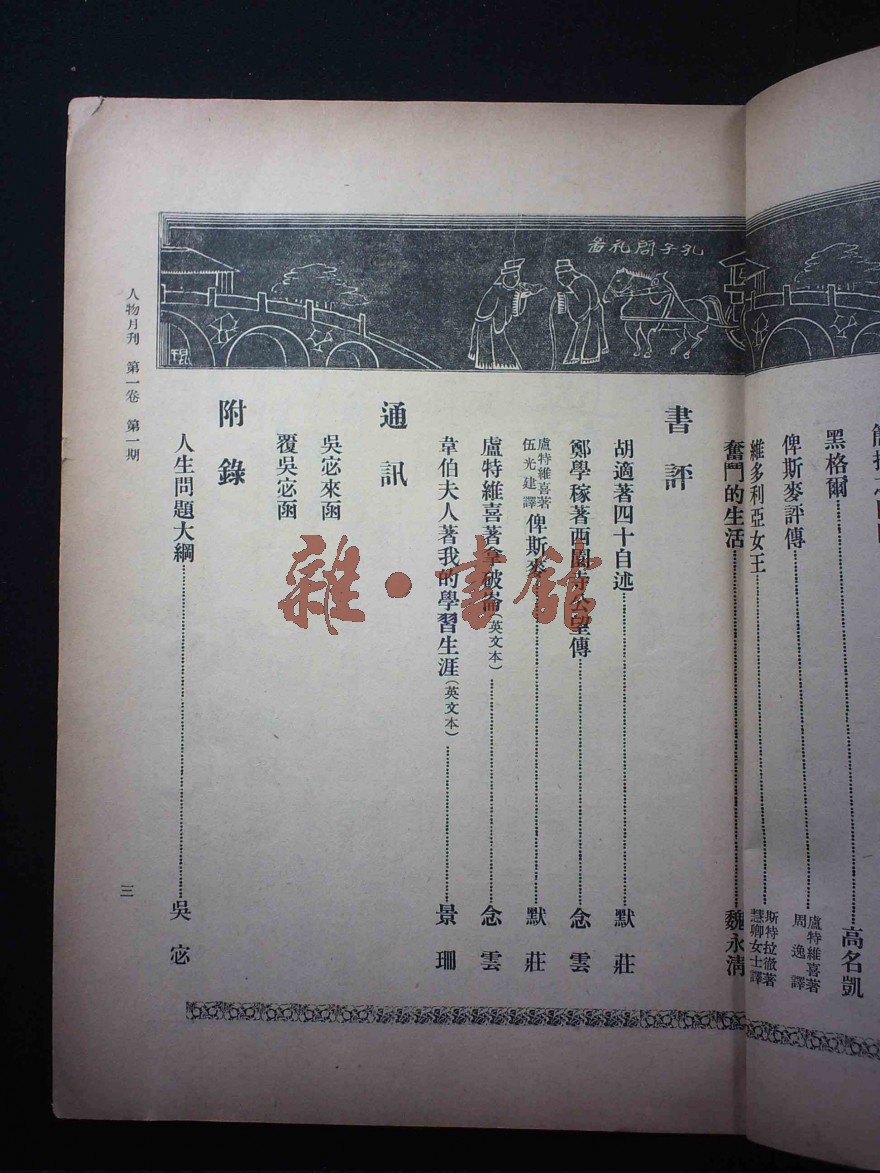 孔子問礼畣
黑格爾 高名凱
俾斯麥評傳 盧特維喜著 周逸譯
維多利亞女王 斯特拉徹著 慧卿女士譯
奮鬥的生活 魏永清
書評
胡適著四十自述 默莊
鄭學稼著西園寺公望傳 念雲
盧特維喜著 伍光建譯 俾斯麥 默莊
盧特維喜著拿破崙(英文本) 念雲
韋伯夫人著我的學習生涯(英文本) 景珊
通訊
吳宓來函
覆吳宓函
附錄
人生問題大綱 吳宓
人物月刊 第一卷 第一期
三
雜·書館